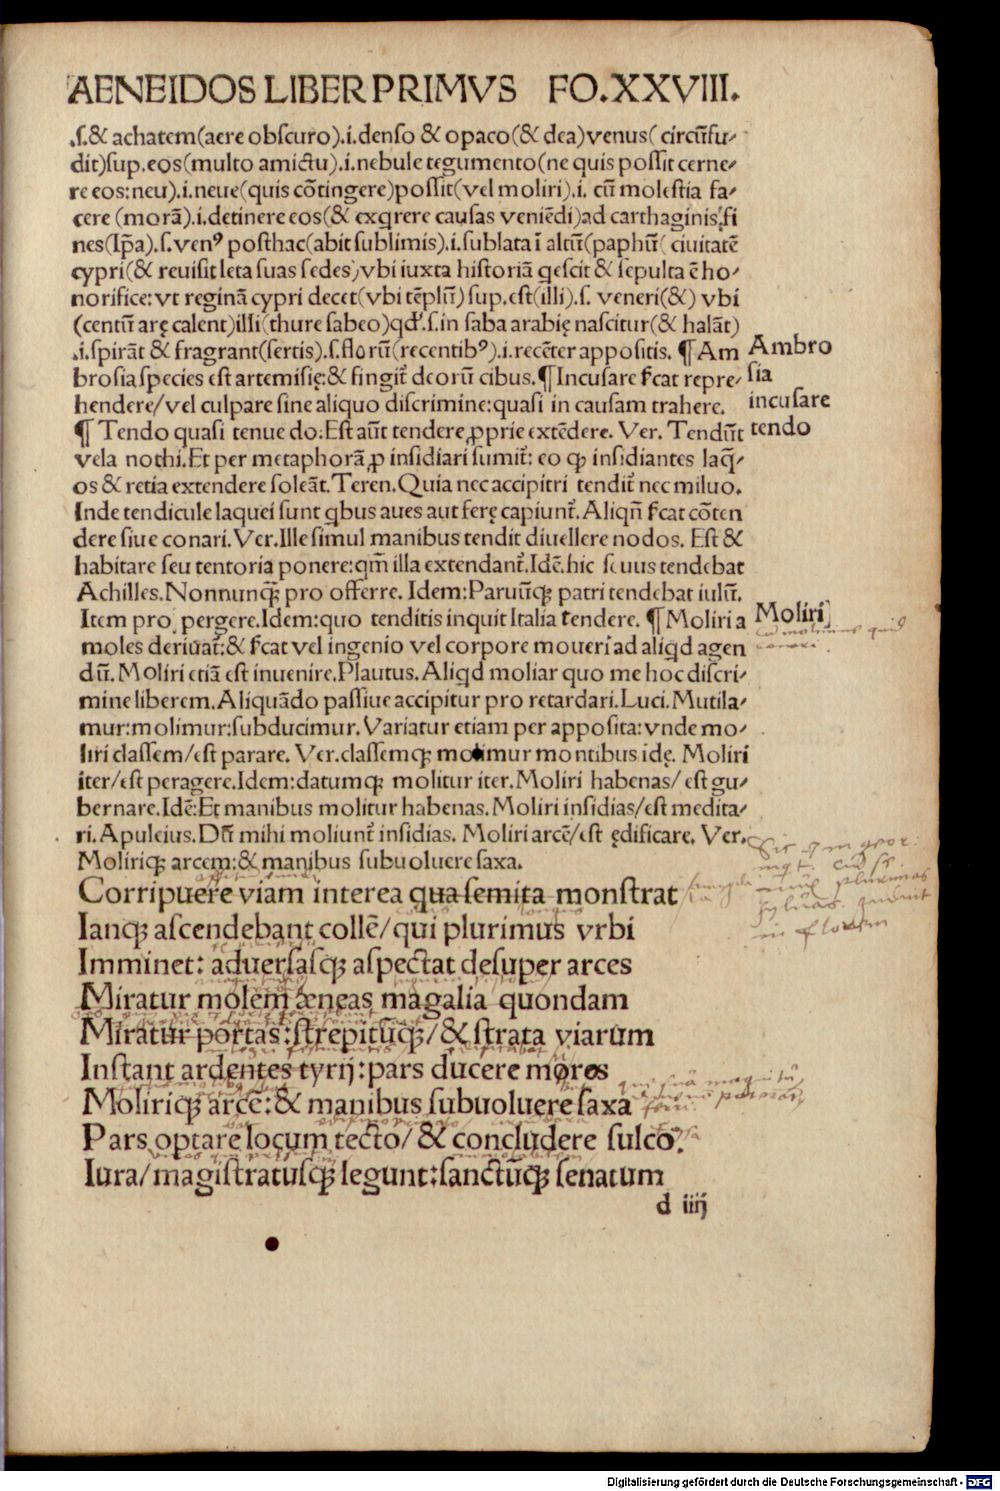 AENEIDOS LIBER PRIMVS FO.XXVIII.
.ſ.& achatem(aere obſcuro).i.denſo & opaco(& dea)venus( circūfu⸗
dit)ſup.eos(multo amictu).i.nebule tegumento(ne quis poſſit cerne⸗
re eos:neu).i.neue(quis cōtingere)poſſit(vel moliri).i. cū moleſtia fa⸗
cere (morā).i.detinere eos(& exqrere cauſas veniēdi)ad carthaginis fi
nes(Ip̄a).ſ.venꝰ poſthac(abit ſublimis).i.ſublata ī altū(paphū( ciuitatē
cypri(& reuiſit leta ſuas ſedes)vbi iuxta hiſtoriā qeſcit & ſepulta ē ho⸗
norifice:vt reginā cypri decet(vbi tēplū)ſup.eſt(illi).ſ. veneri(&) vbi
(centū arę calent)illi(thure ſabeo)qd'.ſ.in ſaba arabię naſcitur(& halāt)
.i.ſpirāt & fragrant(ſertis).ſ.florū(recentibꝰ).i.recēter appoſitis. ¶Am
Ambro
broſia ſpecies eſt artemiſię:& fingit̄ deorū cibus.¶Incuſare ſ̄cat repre⸗
ſia
hendere/vel culpare ſine aliquo diſcrimine:quaſi in cauſam trahere.
incuſare
¶ Tendo quaſi tenue do:Eſt aūt tendere ꝓprie extēdere. Ver. Tendūt
tendo
vela nothi.Et per metaphorā ꝓ inſidiari ſumit̄: eo ꝙ inſidiantes laq̄⸗
os & retia extendere ſoleāt.Teren.Quia nec accipitri tendit̄ nec miluo.
Inde tendicule laquei ſunt qbus aues aut ferę capiunt̄.Aliqn̄ ſ̄cat cōten
dere ſiue conari.Ver.Ille ſimul manibus tendit diuellere nodos. Eſt &
habitare ſeu tentoria ponere:qm̄ illa extendant̄.Idē.hic ſeuus tendebat
Achilles.Nonnunꝗ̄ pro offerre. Idem:Paruūꝗ patri tendebat iulū.
Item pro pergere.Idem:quo tenditis inquit Italia tendere. ¶Moliri a
Moliri
moles deriuat̄:& ſ̄cat vel ingenio vel corpore moueri ad aliqd agen
dū.Moliri etiā eſt inuenire.Plautus.Aliqd moliar quo me hoc diſcri⸗
mine liberem.Aliquādo paſſiue accipitur pro retardari.Luci.Mutila⸗
mur:molimur:ſubducimur.Variatur etiam per appoſita:vnde mo⸗
liri claſſem/eſt parare. Ver.claſſemꝗ molimur montibus idę. Moliri
iter/eſt peragere.Idem:datumꝗ molitur iter.Moliri habenas/ eſt gu⸗
bernare.Idē:Et manibus molitur habenas.Moliri inſidias/eſt medita⸗
ri.Apuleius.Dū mihi moliunt̄ inſidias. Moliri arcē/eſt ędificare. Ver.
Moliriꝗ arcem:& manibus ſubuoluere ſaxa.
Corripuere viam interea qua ſemita monſtrat
Ianꝗ aſcendebant collē/qui plurimus vrbi
in florem
Imminet: aduerſaſꝗ aſpectat deſuper arces
Miratur molem æneas magalia quondam
Miratur portas:ſtrepituꝗ/& ſtrata viarum
Inſtant ardentes tyrij:pars ducere mores
Moliriꝗ arcē:& manibus ſubuoluere ſaxa
Pars optare locum tecto/& concludere ſulco.
Iura/magiſtratuſꝗ legunt:ſanctūꝗ ſenatum
d iiij
Digitalisierung gefördert durch die Deutsche Forschungsgemeinschaft - DFG